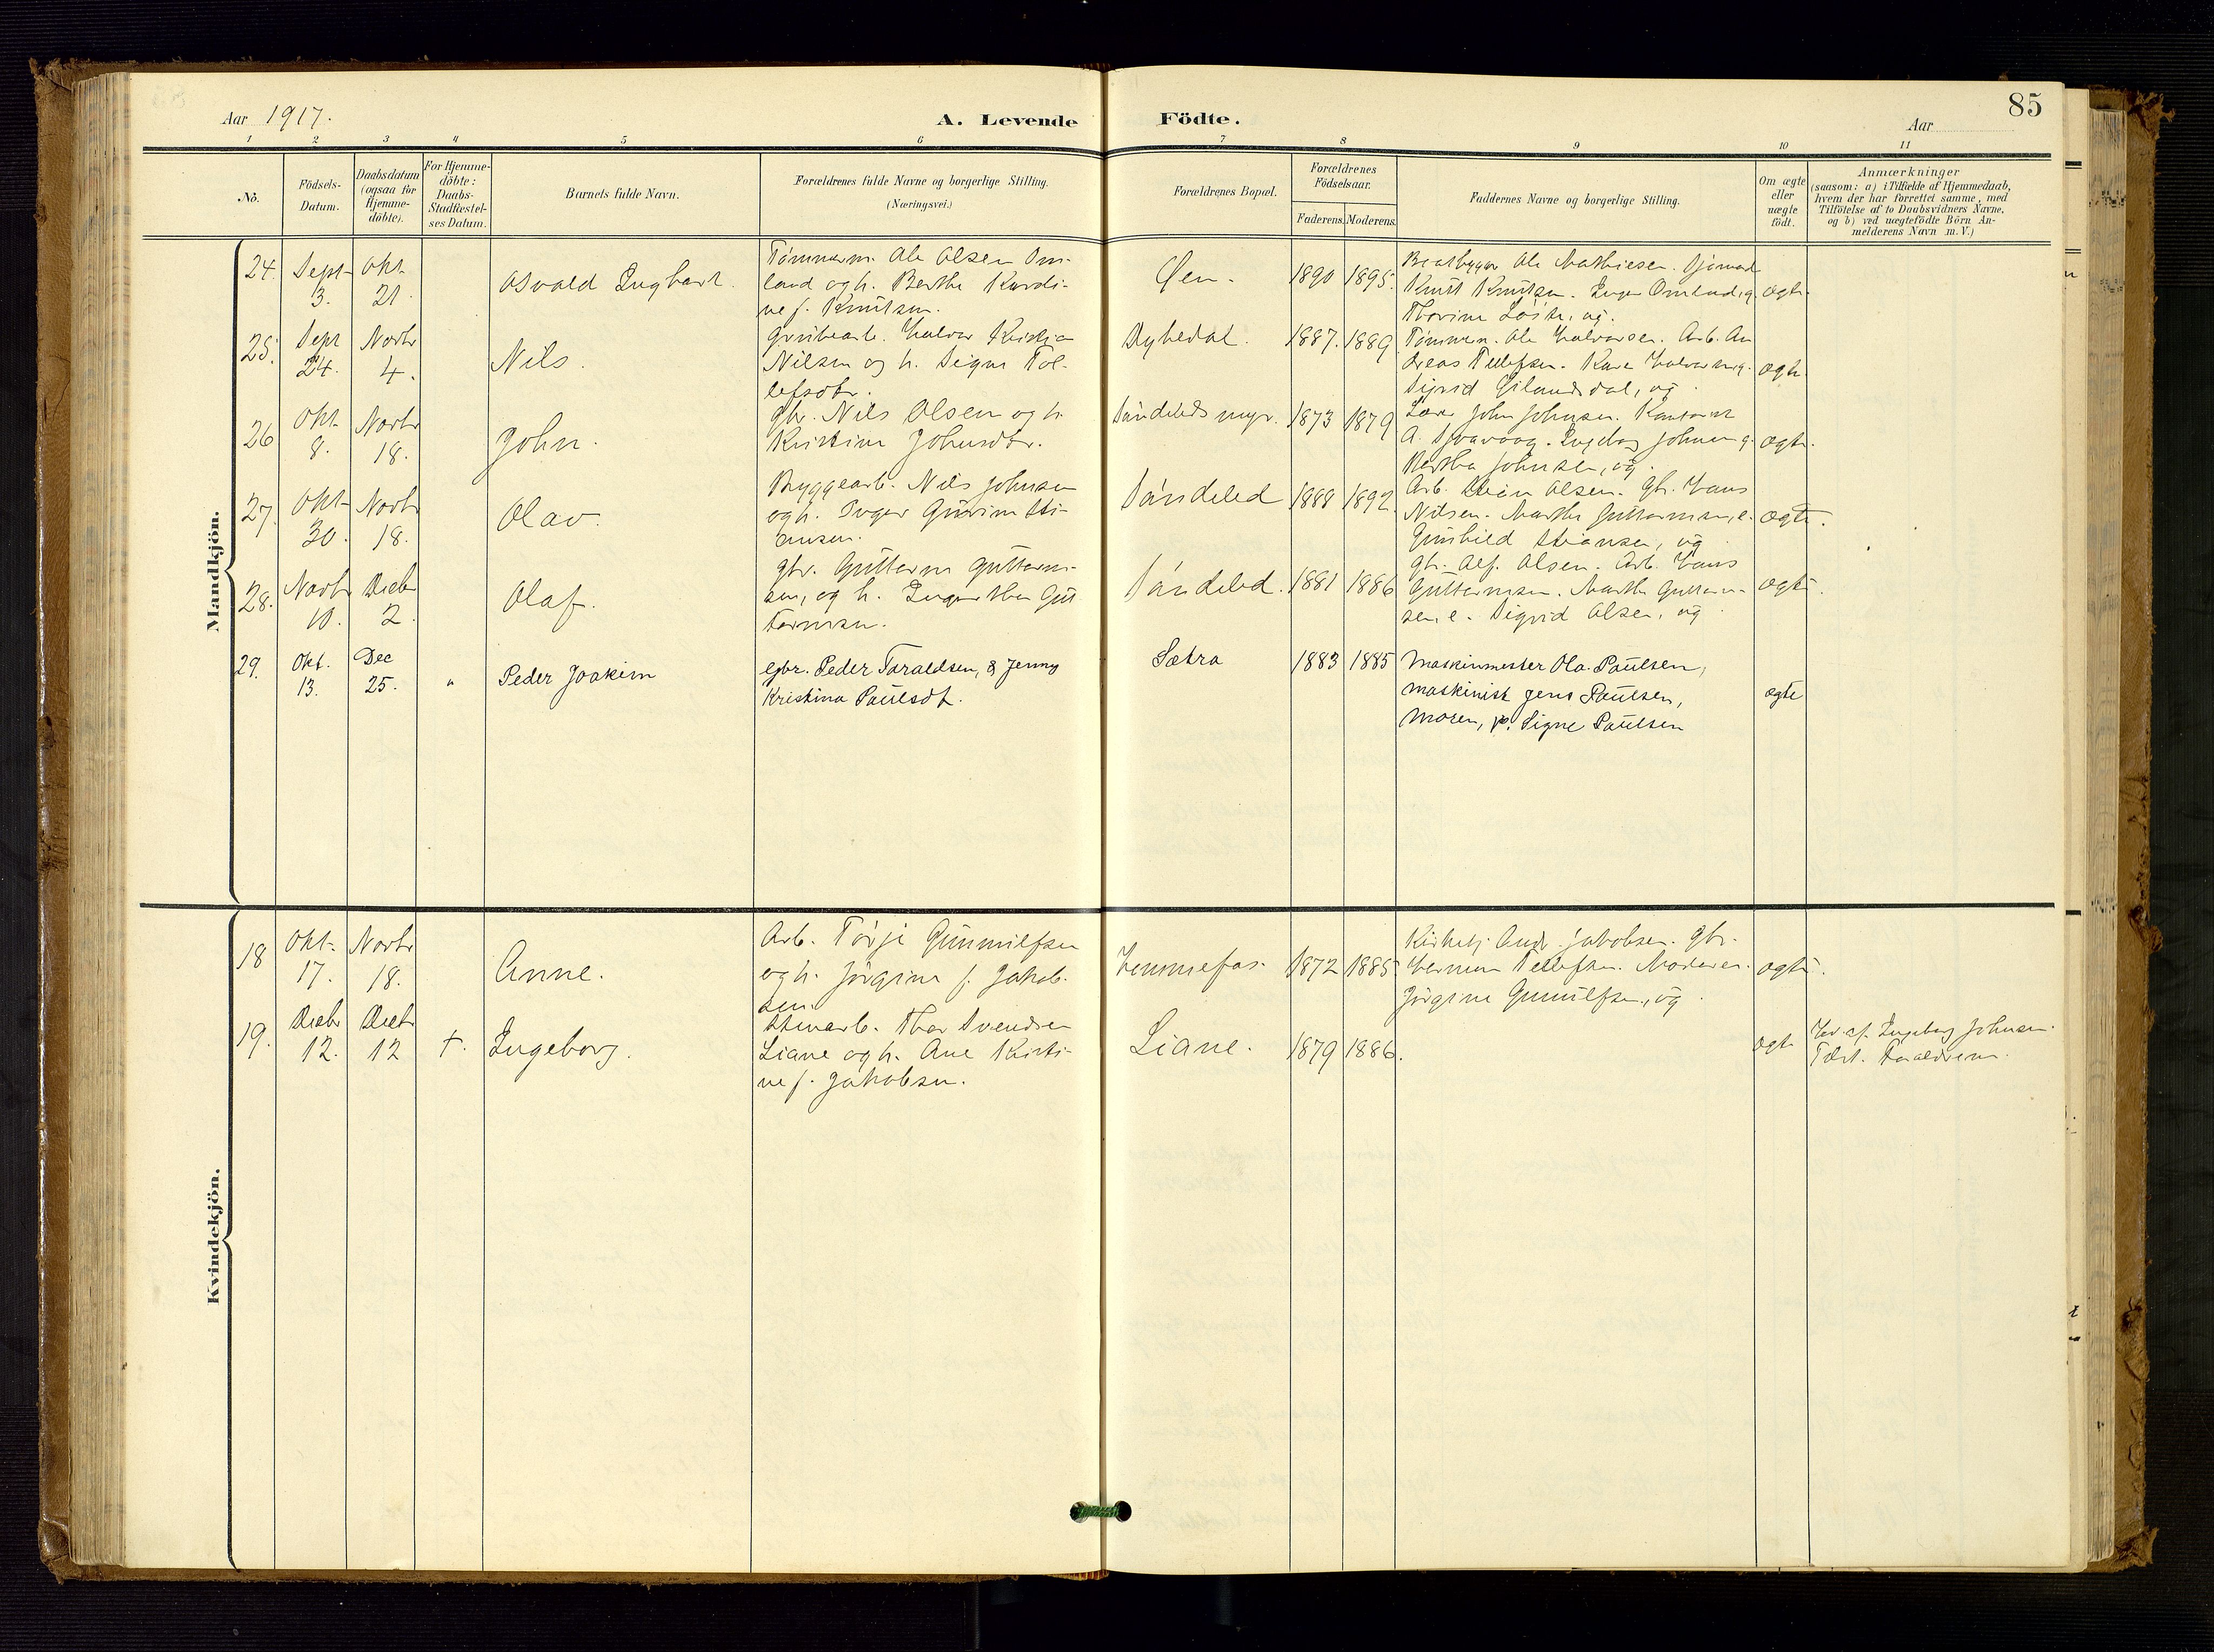 85
Aar 1917.
A. Levende Födte.
Aar
1 2 3 4 5 6 7 8 9 10 11
No.
Födsels-
Datum.
Daabsdatum
(ogsaa for
Hjemme-
döbte).
For Hjemme-
döbte:
Daabs-
Stadfæstel-
ses Datum.
Barnets fulde Navn.
Forældrenes fulde Navne og borgerlige Stilling.
(Næringsvei.)
Forældrenes Bopæl.
Forældrenes
Födselsaar.
Faderens. Moderens.
Faddernes Navne og borgerlige Stilling.
Om ægte
eller
uægte
födt.
Anmærkninger
(saasom: a) i Tilfælde af Hjemmedaab,
hvem der har forrettet samme, med
Tilföielse af to Daabsvidners Navne,
og b) ved uægtefödte Börn An-
melderens Navn m. V.)
Mandkjön.
24.
Sept
3.
Okt.
21.
Osvald Ingbart.
Tømmerm. Ole Olsen Om-
land og h. Berthe Kardi-
ne f. Knutsen.
Øen.
1890 1895.
Ole Mathiesen. Sjömand
Knut Knutsen. Inger Omland, g.
ægte.
25.
Sept
24.
Novbr
4.
Nils.
Grubearb. Halvor Kristja
Nilsen og h. Signe Tol-
lefsdtr.
Dybedal.
1887. 1889.
Tømmerm. Ole Halvorsen. Arb. An
dreas Tellefsen. Kare Halvorsen, g.
Sigrid Gilandsdal, ug.
ægte.
26
Okt.
8.
Novbr
18.
John.
Gbr. Nils Olsen og h.
Kristine Johnsdtr.
Søndeleds myr.
1873 1879
Lærer John Johnsen.
A. Ingeborg Johnsen g.
Bertha Johnsen, ug.
ægte.
27.
Okt.
30.
Novbr
18.
Olav.
Byggearb. Nils Johnsen
og h. Inger Gurine Sti-
ansen.
Søndeled
1888 1892.
Arb. Stein Olsen. Gbr. Hans
Nilsen. Marthe Guttormsen, e.
Gunhild Stiansen, ug.
ægte.
28.
Novbr
10.
Decbr
2.
Olaf.
Gbr. Guttorm Guttorm-
sen, og h. Ingerthea Gut
tormsen.
Søndeled.
1881 1886
Gbr. Alf. Olsen. Arb. Hans
Guttormsen. Marthe Guttorm-
sen, e. Sigrid Olsen, ug.
ægte.
29.
Okt.
13.
Dec
25.
"
Peder Joakim
Gbr. Peder Taraldsen, & Jenny
Kristina Paulsdt.
Sætra
1883 1885
Maskinmester Ola Paulsen,
maskinist Jens Paulsen,
Moren, p. Signe Paulsen
ægte
Kvindekjön.
18
Okt.
17.
Novbr
18.
Anne.
Arb. Törje Gunnulfsen
og h. Jørgine f. Jakob-
sen
Hemmefos.
1872 1885
Kirketj. Andr. Jakobsen. Gbr.
Herman Tellefsen. Moderen.
Jørgine Gunulfsen, ug.
ægte.
19.
Decbr
12.
Decbr
12
†.
Ingeborg.
Stenarb. Thor Svendsen
Liane og h. Ane Kirsti-
ne f. Jakobsen.
Liane.
1879 1886.
ægte
Hd. af. Ingeborg Johnsen.